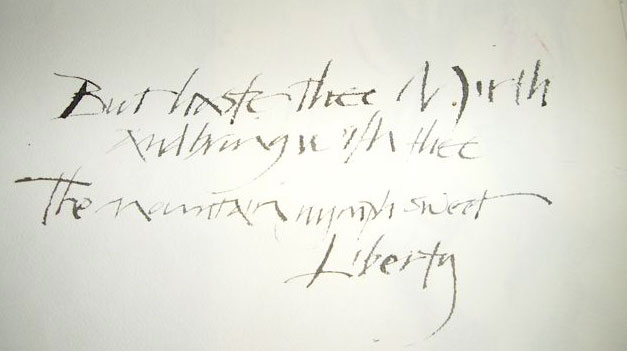 But haste thee Mirth
And bring with thee
The mountain nymph sweet
Liberty